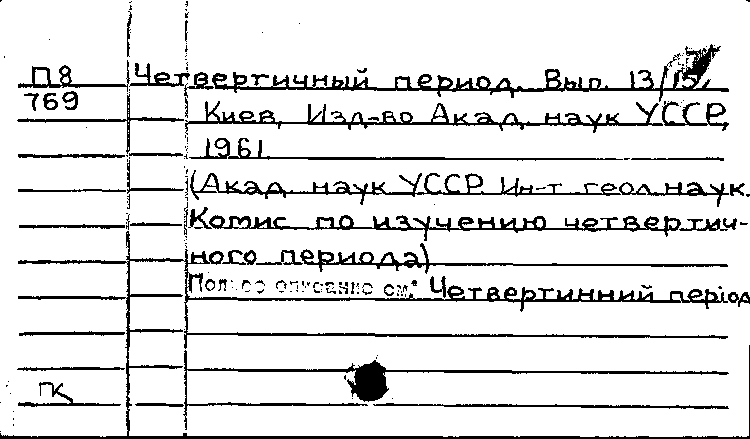 П8 Четвертичный период. Вып. 13/15,
769 Киев, Изд-во Акад. наук УССР,
1961.
(Акад. наук УССР. Ин-т геол. наук.
Комис. по изучению четвертич-
ного периода)
Полное описание см: Четвертинний період
ПК